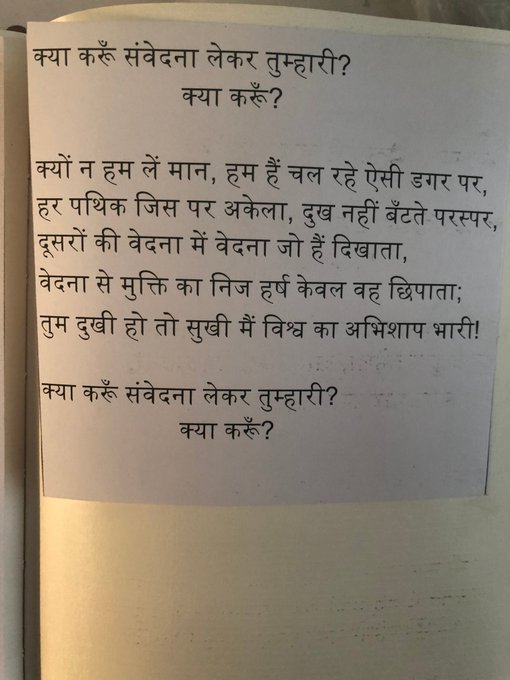 क्या करूँ संवेदना लेकर तुम्हारी?
क्या करूँ?
क्यों न हम लें मान, हम हैं चल रहे ऐसी डगर पर,
हर पथिक जिस पर अकेला, दुख नहीं बँटते परस्पर,
दूसरों की वेदना में वेदना जो हैं दिखाता,
वेदना से मुक्ति का निज हर्ष केवल वह छिपाता;
तुम दुखी हो तो सुखी मैं विश्व का अभिशाप भारी!
क्या करूँ संवेदना लेकर तुम्हारी?
क्या करूँ?